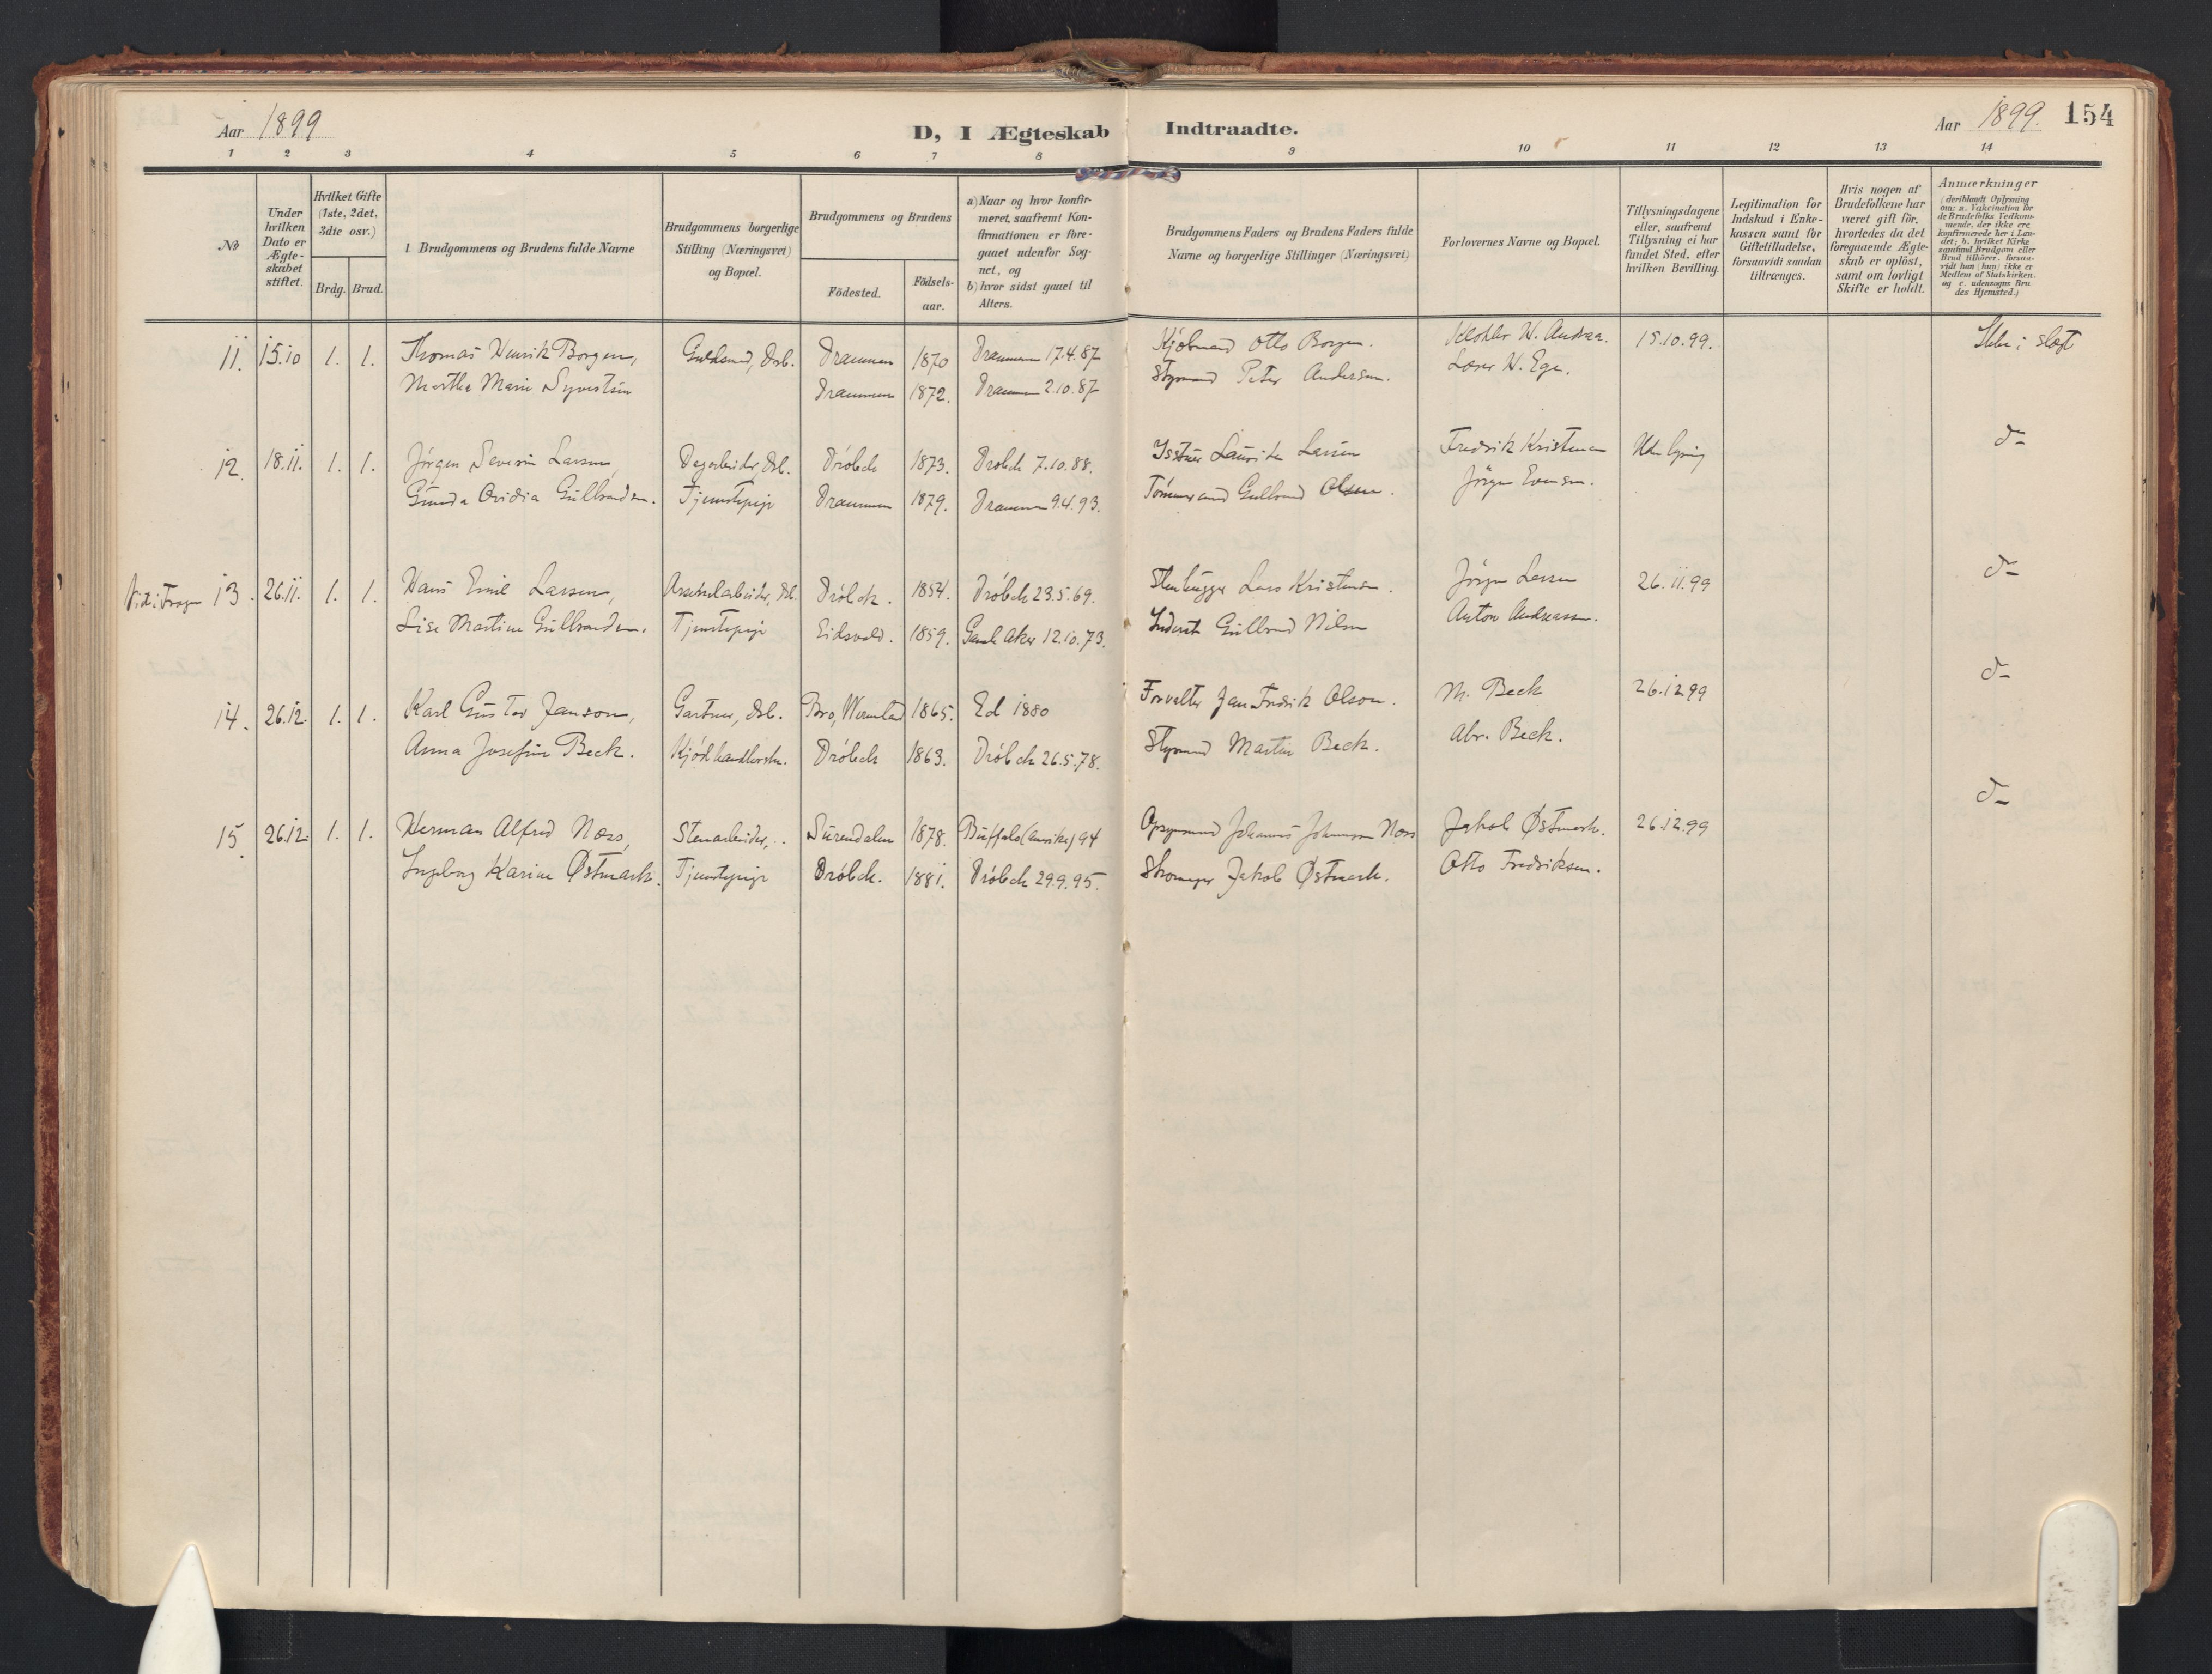 Aar 1899
D, I Ægteskab Indtraadte.
Aar 1899. 154
1 2 3 4 5 6 7 8 9 10 11 12 13 14
No
Under hvilken Dato er Ægteskabet stiftet.
Hvilket Gifte (1ste, 2det, 3die osv.)
Brdg. Brud.
Brudgommens og Brudens fulde Navne
Brudgommens borgerlige Stilling (Næringsvei) og Bopæl.
Brudgommens og Brudens
Födested.
Födselsaar.
a) Naar og hvor konfirmeret, saafremt Konfirmationen er foregaaet udenfor Sognet, og
b) hvor sidst gaaet til Alters.
Brudgommens Faders og Brudens Faders fulde Navne og borgerlige Stillinger (Næringsvei)
Forlovernes Navne og Bopæl.
Tillysningsdagene eller, saafremt Tillysning ei har fundet Sted, efter hvilken Bevilling.
Legitimation for Indskud i Enkekassen samt for Giftetilladelse, forsaavidt saadan tiltrænges.
Hvis nogen af Brudefolkene har været gift för, hvorledes da det foregaaende Ægteskab er oplöst, samt om lovligt Skifte er holdt.
Anmærkninger (deriblandt Oplysning om: a. Vakcination for de Brudefolks Vedkommende, der ikke ere konfirmerede her i Landet; b. hvilket Kirkesamfund Brudgom eller Brud tilhörer, forsaavidt han (hun) ikke er Medlem af Statskirken, og c. udensogns Brudes Hjemsted.)
11. 15.10 1. 1. Thomas Henrik Borgen, Guldsmed, Drb. Drammen 1870 Drammen 17.4.87 Kjöbmand Otto Borgen. Klokker H. 15.10.99. Ikke i slegt
Martha Marie Syvertsen Drammen 1872. Drammen 2.10.87 Styrmand Peter Andersen. Læser H. Ege.
12. 18.11. 1. 1. Jörgen Severin Larsen, Dagarbeider, Drb. Dröbak 1873. Dröbak 7.10.88. Lauritz Larsen Fredrik Kristensen Uden lysning do
Gunda Ovidia Gulbrandsen. Tjenestepige Drammen 1879. Drammen 9.4.93. Tömmermand Gulbrand Olsen. Jörgen Evensen.
13. 26.11. 1. 1. Hans Emil Larsen, Arsenalarbeider, Drb. Dröbak. 1854. Dröbak 23.5.69. Stenhugger Lars Kristensen. Jörgen Larsen 26.11.99 do
Lise Martine Gulbrandsen. Tjenestepige Eidsvold. 1859. Gamle Aker 12.10.73. Inderst Gulbrand Nilsen Anton Andreassen.
14. 26.12. 1. 1. Karl Gustav Janson, Gartner, Drb. Bro, Wermland 1865. Ed 1880 Forvalter Jan Fredrik Olson. M. Beck 26.12.99 do
Anna Josefine Beck. Kjödhandlerske. Dröbak 1863. Dröbak 26.5.78. Styrmand Martin Beck. Abr. Beck.
15. 26.12. 1. 1. Herman Alfred Næss, Stenarbeider, Surendalen 1878. Buffalo (Amerika) 94 Opsynsmand Johannes Johannessen Næss Jakob Østmark. 26.12.99 do
Ingeborg Karine Østmark. Tjenestepige Dröbak. 1881. Dröbak 29.9.95. Jakob Østmark. Otto Fredriksen.